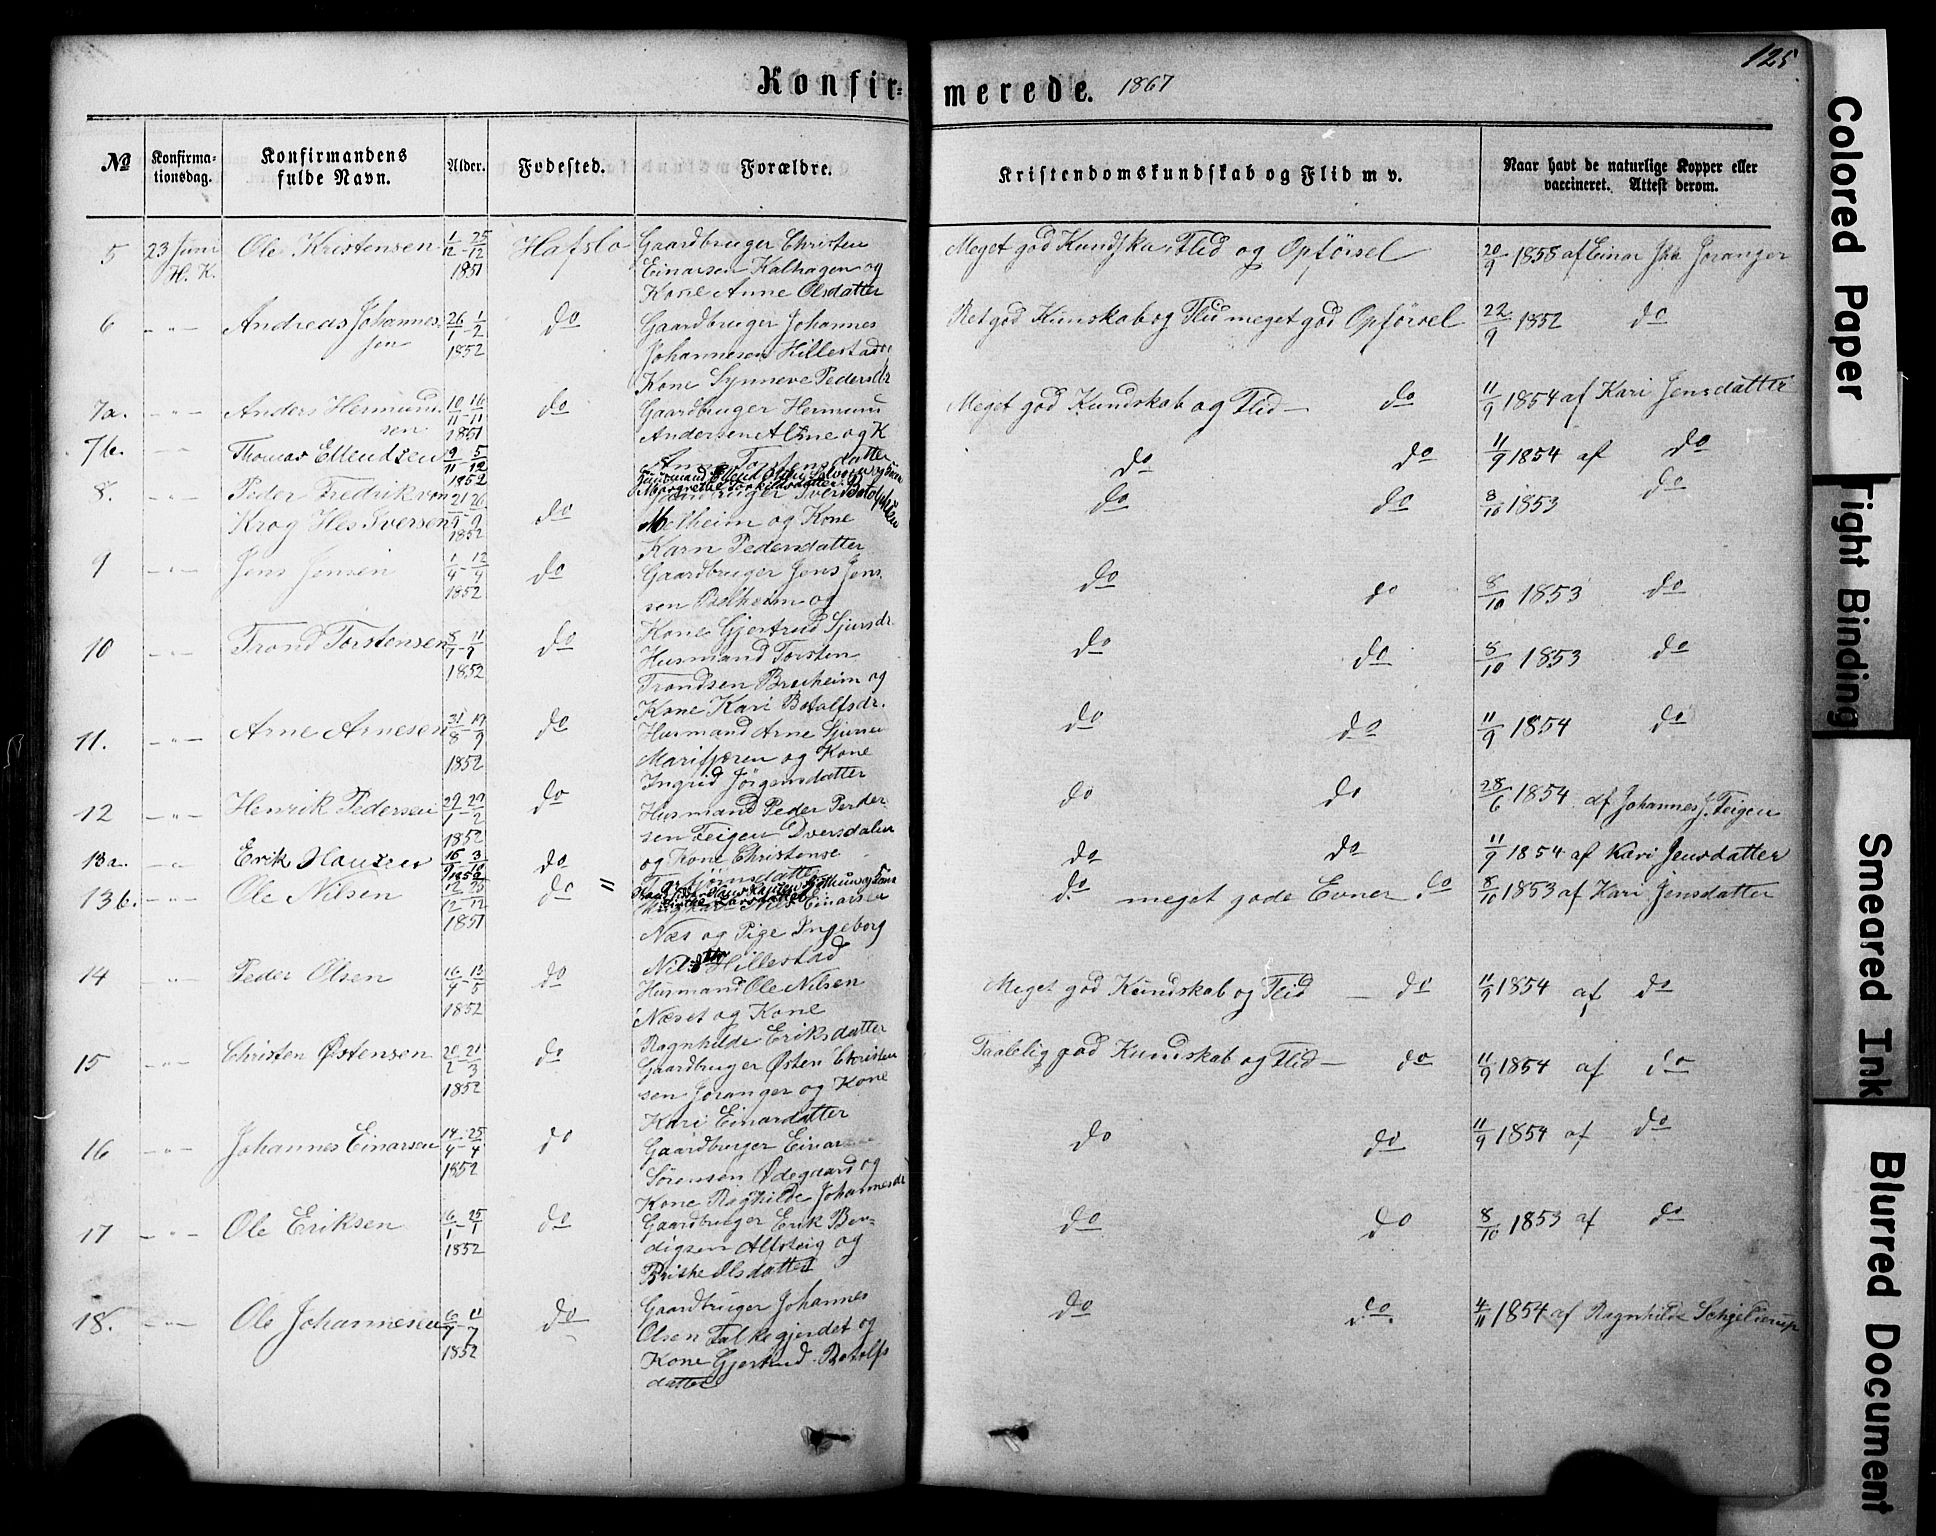 125
Konfir= merede. 1867
№ Konfirma-tionsdag. Konfirmandens fulde Navn. Alder. Fodested. Forældre. Kristendomskundskab og Flid m v. Naar havt de naturlige Kopper eller vaccineret. Attest derom.
5 23 Juni Ole Kristensen 1/12 - 25/12 Hafslo Gaardbruger Christen Meget god Kundskab Flid og Opførsel 20/9 1855 af Einar Joranger
H. K. 1851 Einarsen Kalhagen og
Kone Anne Olsdatter
6 - " - Andreas Johannes 26/1 - 1/2 do Gaardbruger Johannes Ret god Kunskab og Flid meget god Opførsel 22/9 1852 do
sen 1852 Johannesen Hillestad og
Kone Synneve Pedersdr
7a. - " - Anders Hermund 10/11 - 16/11 do Gaardbruger Hermund Meget god Kundskab og Flid - do 11/9 1854 af Kari Jensdatter
sen 1851 Andersen Alme og K
7b. - " - Thomas Ellendsen 9/11 - 5/12 do do 11/9 1854 af do
1852
8. - " - Peder Fredrik von do do do 8/10 1853 do
Krog Hes Iversen 1852 Melheim og Kone
Karn Pedersdatter
9 - " - Jens Jensen 1/4 - 12/4 do Gaardbruger Jens Jens do do 8/10 1853 do
1852 sen Bolheim og
Kone Gjertrud Sjursdr.
10 - " - Trond Torstensen do Husmand Torsten do do 8/10 1853 do
1852 Trondsen Breiheim og
Kone Kari Botolfsdr.
11. - " - Arne Arnesen 31/8 - 19/9 do Husmand Arne Sjursen do do 11/9 1854 do
1852 Marifjæren og Kone
Ingrid Jörgensdatter
12 - " - Henrik Pedersen 29/1 - 29/2 do Husmand Peder Peder do do 28/6 1854 af Johannes J. Teigen
1852 sen Teigen Dversdalen
13a. - " Erik Hansen do og Kone Christense do do 11/9 1854 af Kari Jensdatter
13b. - " - Ole Nilsen 12/12 - 25/12 do " do meget gode Evner do 8/10 1853 af Kari Jensdatter
1851 Næs og Pige Ingeborg
Nilsdtr Hillestad
14 - " - Peder Olsen 16/4 - 13/5 do Husmand Ole Nilsen Meget god Kundskab og Flid - do 11/9 1854 af do
1852 Næset og Kone
Ragnhilde Eriksdatter
15 - " - Christen Østensen 20/2 - 21/3 do Gaardbruger Østen Christen Taalelig god Kundskab og Flid - do 11/9 1854 af do
1852 sen Joranger og Kone
Kari Einardatter
16 - " - Johannes Einarsen 14/4 - 25/4 do Gaardbruger Einar do do 11/9 1854 af do
1852 Sörensen Ødegaard og
Kone Raghilde Johannesdr
17 - " - Ole Eriksen 16/1 - 25/1 do Gaardbruger Erik Ben- do do 8/10 1853 af do
1852 digsen Alsteig og
Brithe Olsdatter
18. - " - Ole Johannesen 6/7 - 11/7 do Gaardbruger Johannes do do 4/11 1854 af Ragnhilde Schjelderup
1852 Olsen Falkegjerdet og
Kone Gjertrud Botolfs
datter
Colored Paper
Tight Binding
Smeared Ink
Blurred Document